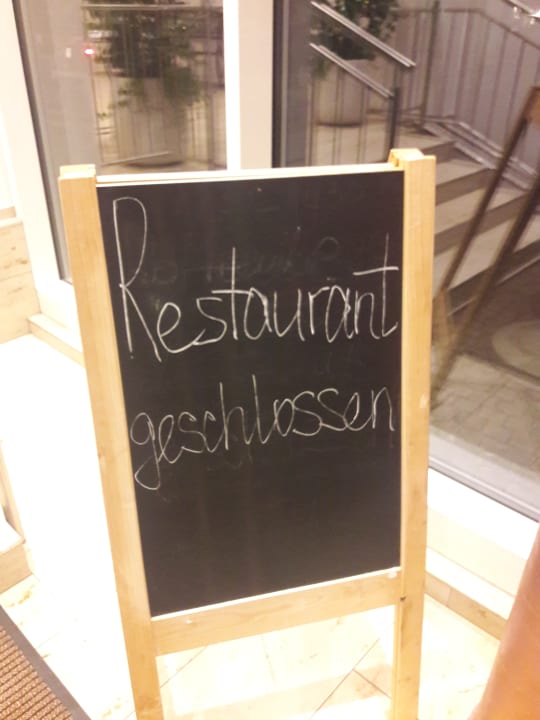 Restaurant
geschlossen